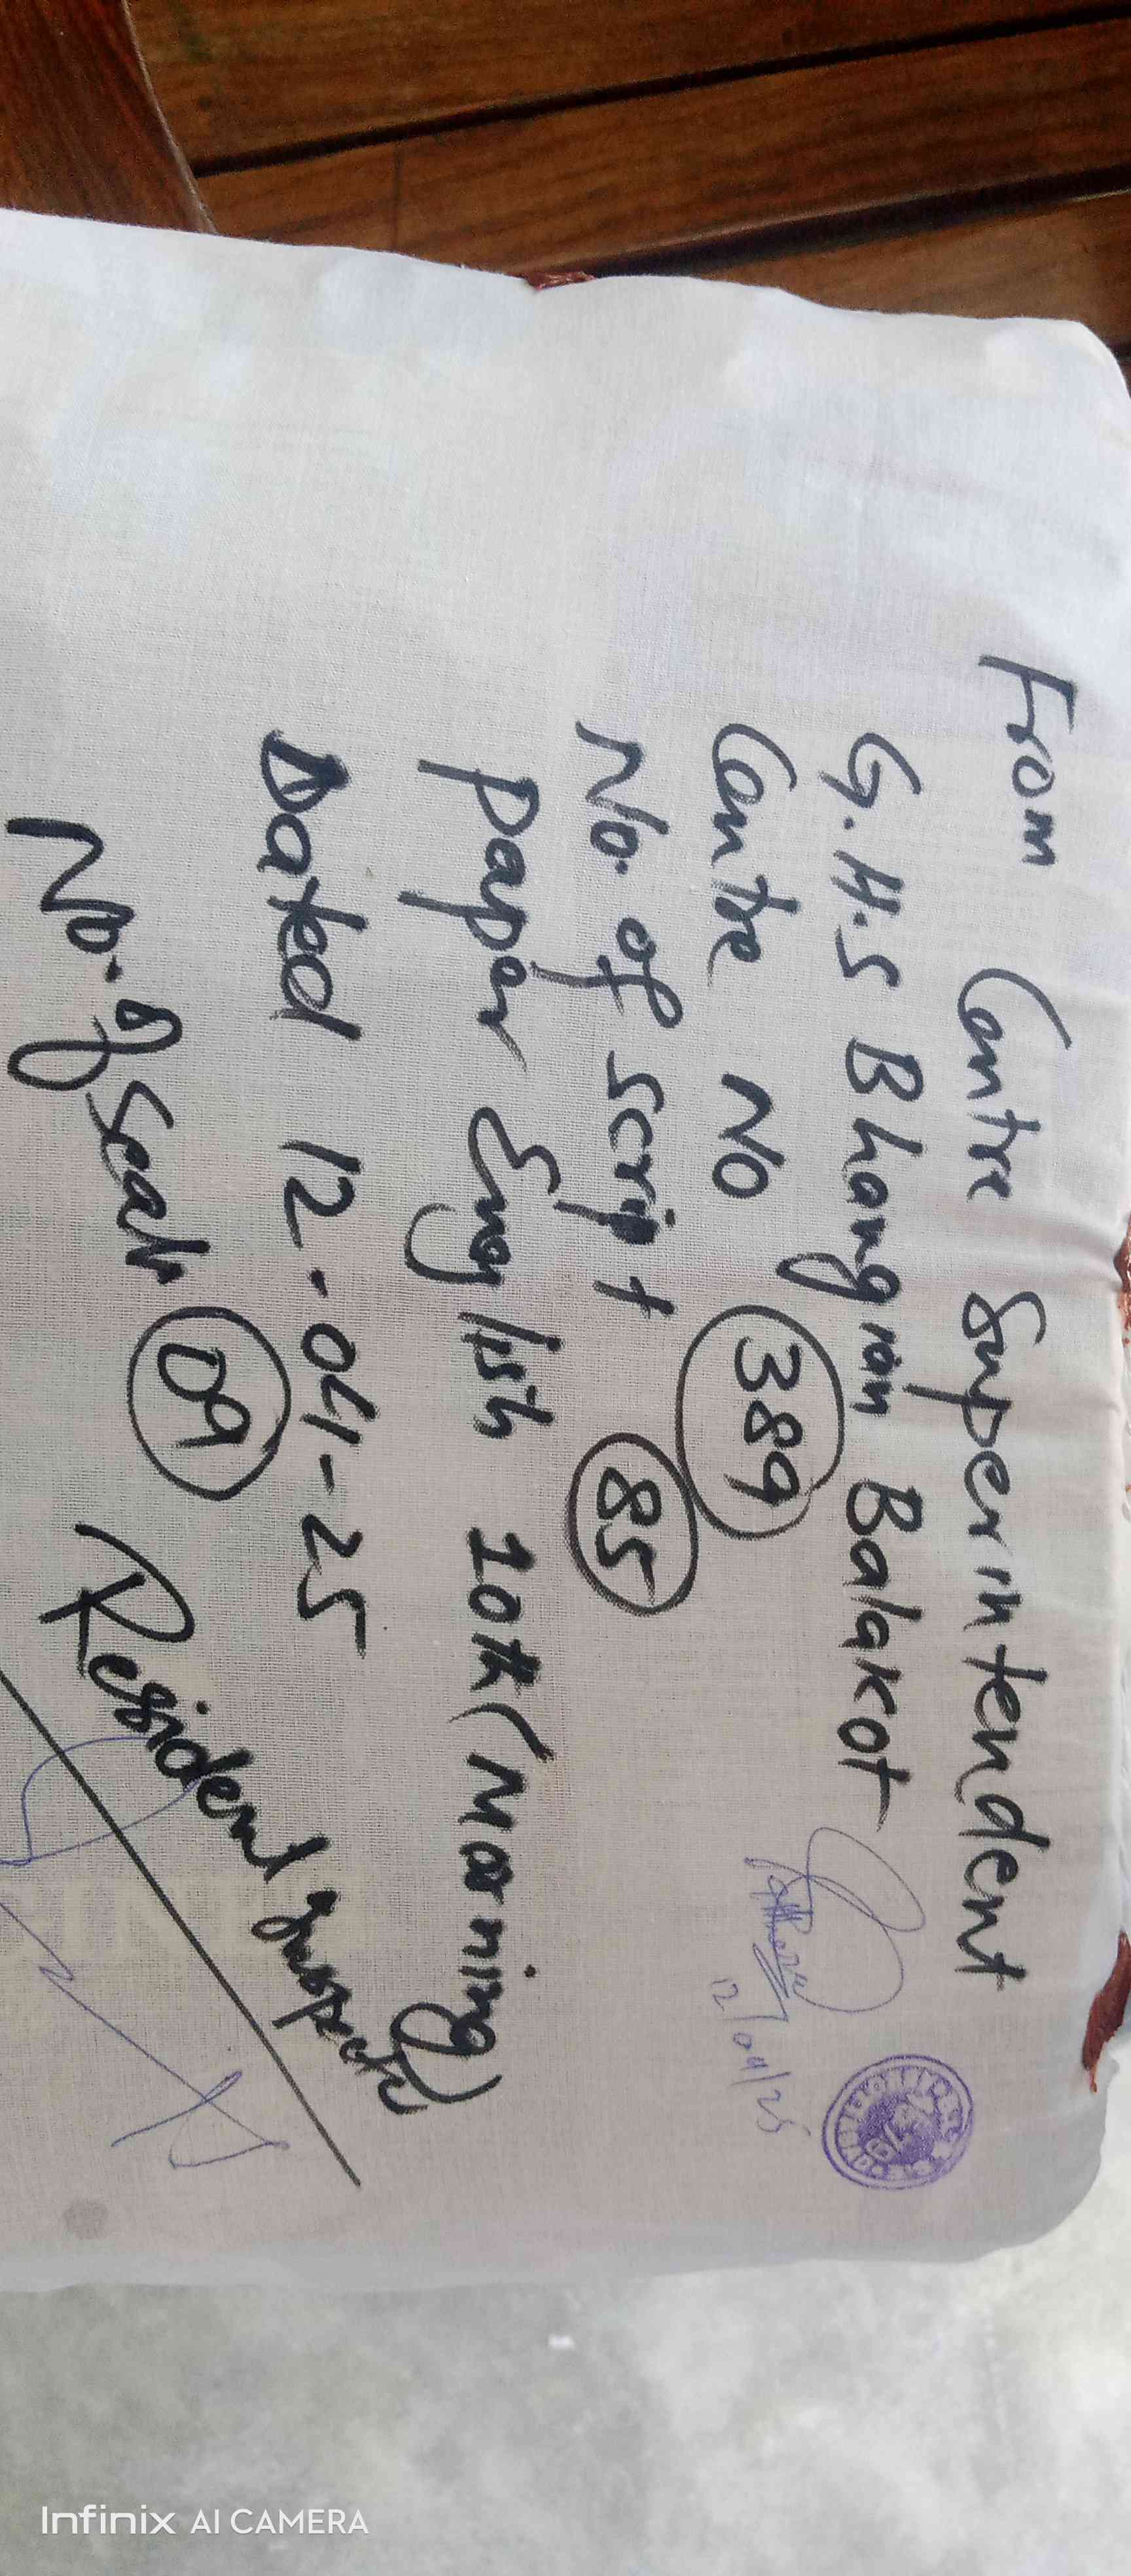 From Centre Superintendent
G.H.S Bhangian Balakot
Centre No 389
No. of script 85
paper English 10th (Morning)
Dated 12-04-25
No. of seals 09
Resident Inspector
12/04/25
Infinix AI CAMERA